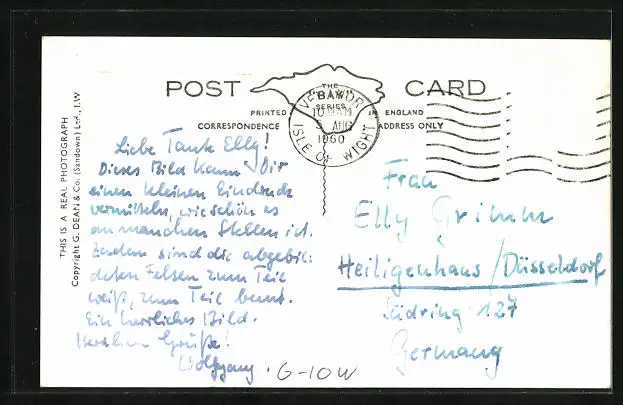 POST CARD
THE
"BAY"
SERIES
PRINTED IN ENGLAND
CORRESPONDENCE
ADDRESS ONLY
VENTNOR
10 AM
5 AUG
1960
ISLE OF WIGHT
THIS IS A REAL PHOTOGRAPH
Copyright G. DEAN & Co. (Sandown) Ltd., I.W
Liebe Tante Elly!
Dieses Bild kann Dir
einen kleinen Eindruck
vermitteln, wie schön es
an manchen Stellen ist.
sind die abgebil:
deten Felsen zum Teil
weiß, zum Teil bunt.
Ein herrliches Bild.
Herzliche Grüße!
Wolfgang.
G-10W
Frau
Elly Grimm
Heiligenhaus / Düsseldorf
Südring 127
Germany